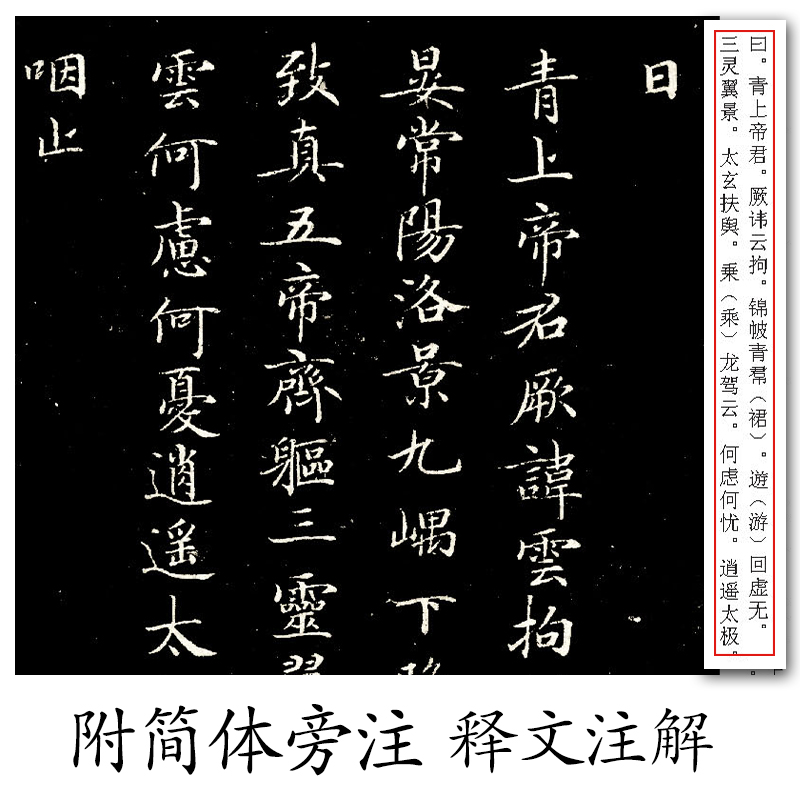 曰
青上帝君厥諱雲拘
晃常陽洛景九嵎下
致真五帝齊軀三靈
雲何慮何憂逍遥太
咽止
曰。青上帝君。厥讳云拘。锦帔青帬（裙）。遊（游）回虚无。
三灵翼景。太玄扶舆。乗（乘）龙驾云。何虑何忧。逍遥太极。
附简体旁注 释文注解